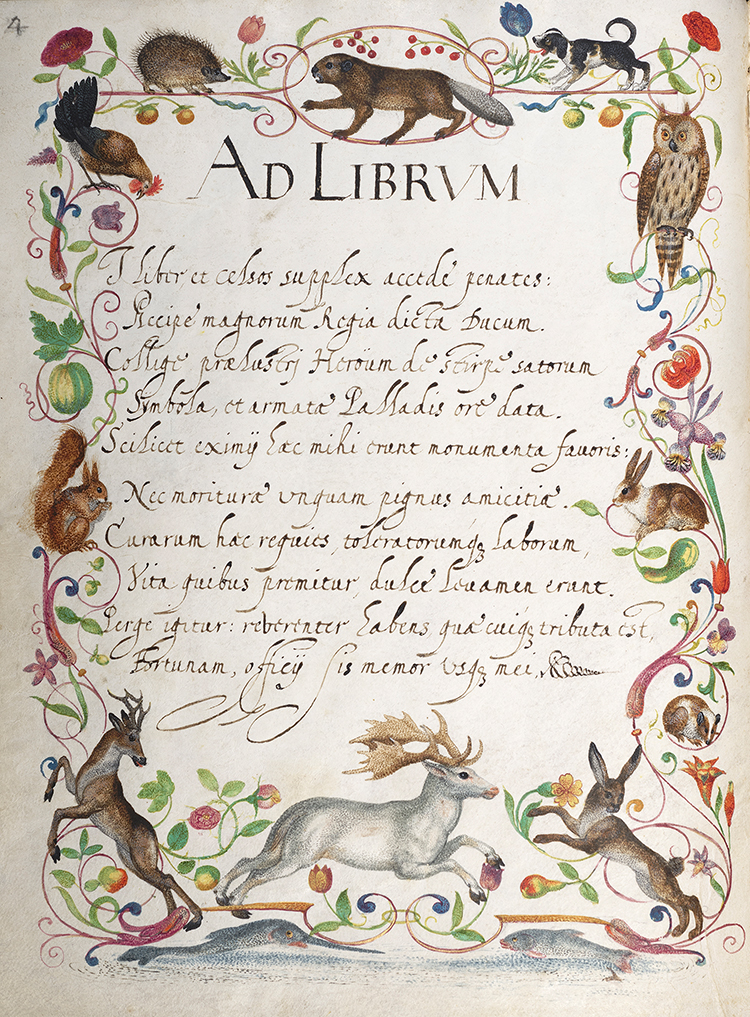 4
AD LIBRVM
I liber et celsos supplex accede penates:
Recipe magnorum Regia dicta Ducum.
Collige prælustrj Heröum de stirpe satorum
Symbola, et armatæ Palladis ore data.
Scilicet eximij hæc mihi erunt monumenta fauoris:
Nec morituræ vnquam pignus amicitiæ.
Curarum hæc requies, toleratorumq₃ laborum,
Vita quibus premitur, dulce leuamen erunt.
Perge igitur: reuerenter habens, quæ cuiq₃ tributa est,
Fortunam, officij sis memor usq₃ mei,